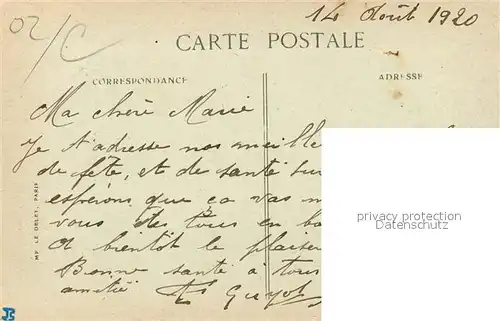 02/C
14 Août 1920
CARTE POSTALE
CORRESPONDANCE
ADRESSE
Ma chère Marie
Je t'adresse nos meille
de fête, et de santé sur
espérons que ça vas m
vous des tous en bo
A bientôt le plaiser
Bonne santé à tous
amitié Guyot
MP LE DELEY, PARIS
privacy protection
Datenschutz